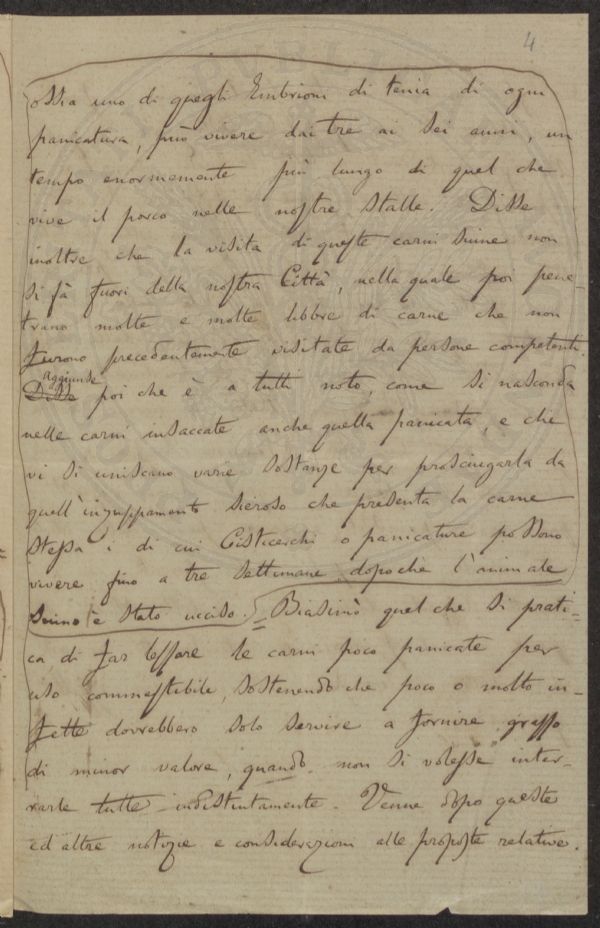 4
ossia uno di quegli Embrioni di tenia di ogni
panicatura, può vivere dai tre ai sei anni, un
tempo enormemente più lungo di quel che
vive il porco nelle nostre stalle. Disse
inoltre che la visita di queste carni suine non
si fà fuori della nostra Città, nella quale poi pene-
trano molte e molte libbre di carne che non
furono precedentemente visitate da persone competenti.
aggiunse
Disse poi che è a tutti noto, come si nasconda
nelle carni insaccate anche quella panicata, e che
vi si uniscano varie sostanze per prosciugarla da
quell'inzuppamento sieroso che presenta la carne
stessa i di cui Cisticerchi o panicature possono
vivere fino a tre settimane dopoche l'animale
suino è stato ucciso. Biasimò quel che si prati-
ca, di far lessare le carni poco panicate per
uso commestibile, sostenendo che poco o molto in-
fette dovrebbero solo servire a fornire grasso
di minor valore, quando non si volesse inter-
rarle tutte indistintamente. Venne dopo queste
ed altre notizie e considerazioni alle proposte relative.